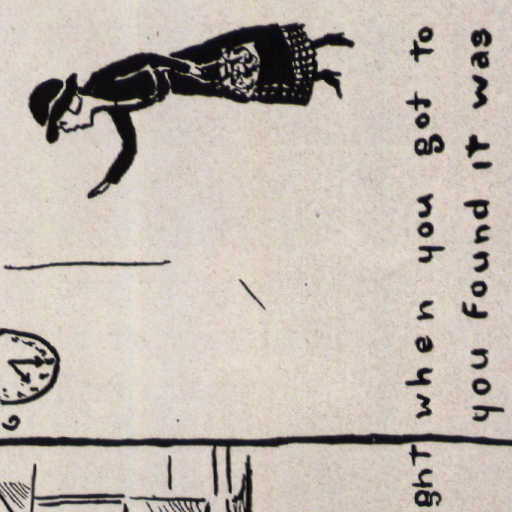 ght when you got to
you found it was